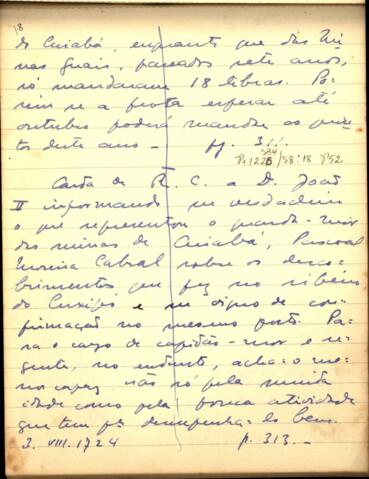 18
de Cuiabá, enquanto que das Mi-
nas Gerais, passados sete anos,
só mandaram 18 libras. Po-
rem se a frota esperar até
outubro poderá mandar os quin-
tos deste ano - p. 311.
584
Pr1226/58:18 P52
Carta de R. C. a D. João
V informando ser verdadeiro
o que representou o guarda-mor
das minas de Cuiabá, Pascoal
Moreira Cabral sobre os desco-
brimentos que fez no ribeiro
do Cuxipó e ser digno de con-
firmação no mesmo posto. Pa-
ra o cargo de capitão-mor e re-
gente, no entanto, acha-o me-
nos capaz não só pela muita
idade como pela pouca atividade
que tem pª desempenha-lo bem.
3. VIII. 1724 p. 313.-